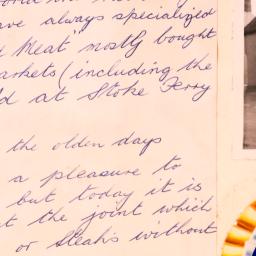 ave always specialized
d Meat" mostly bought
arkets (including the
ld at Stoke Ferry
the olden days
a pleasure to
but today it is
at the joint which
or steaks without